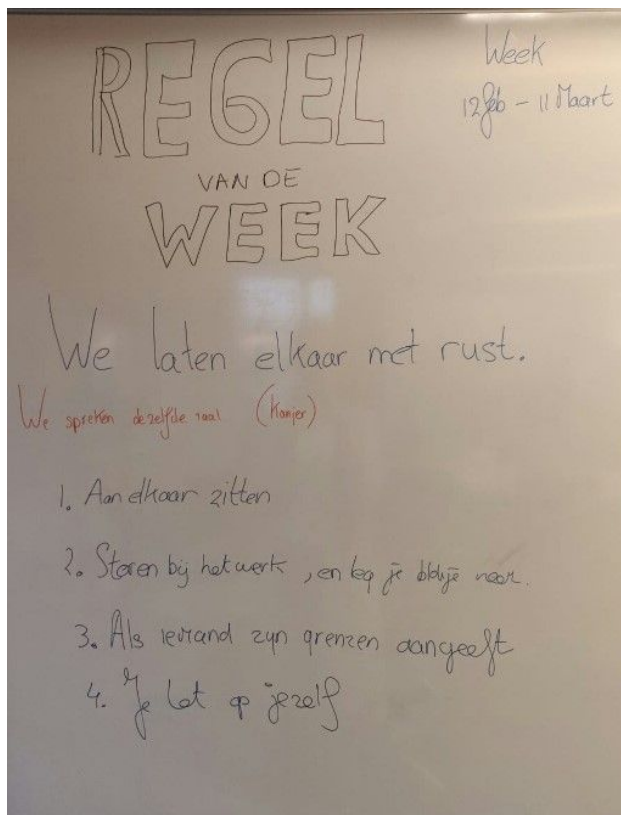 REGEL
Week
12 feb - 11 Maart
VAN DE
WEEK
We laten elkaar met rust.
We spreken dezelfde taal (Kanjer)
1. Aan elkaar zitten
2. Storen bij het werk, en leg je blokje neer.
3. Als iemand zijn grenzen aangeeft
4. Je let op jezelf